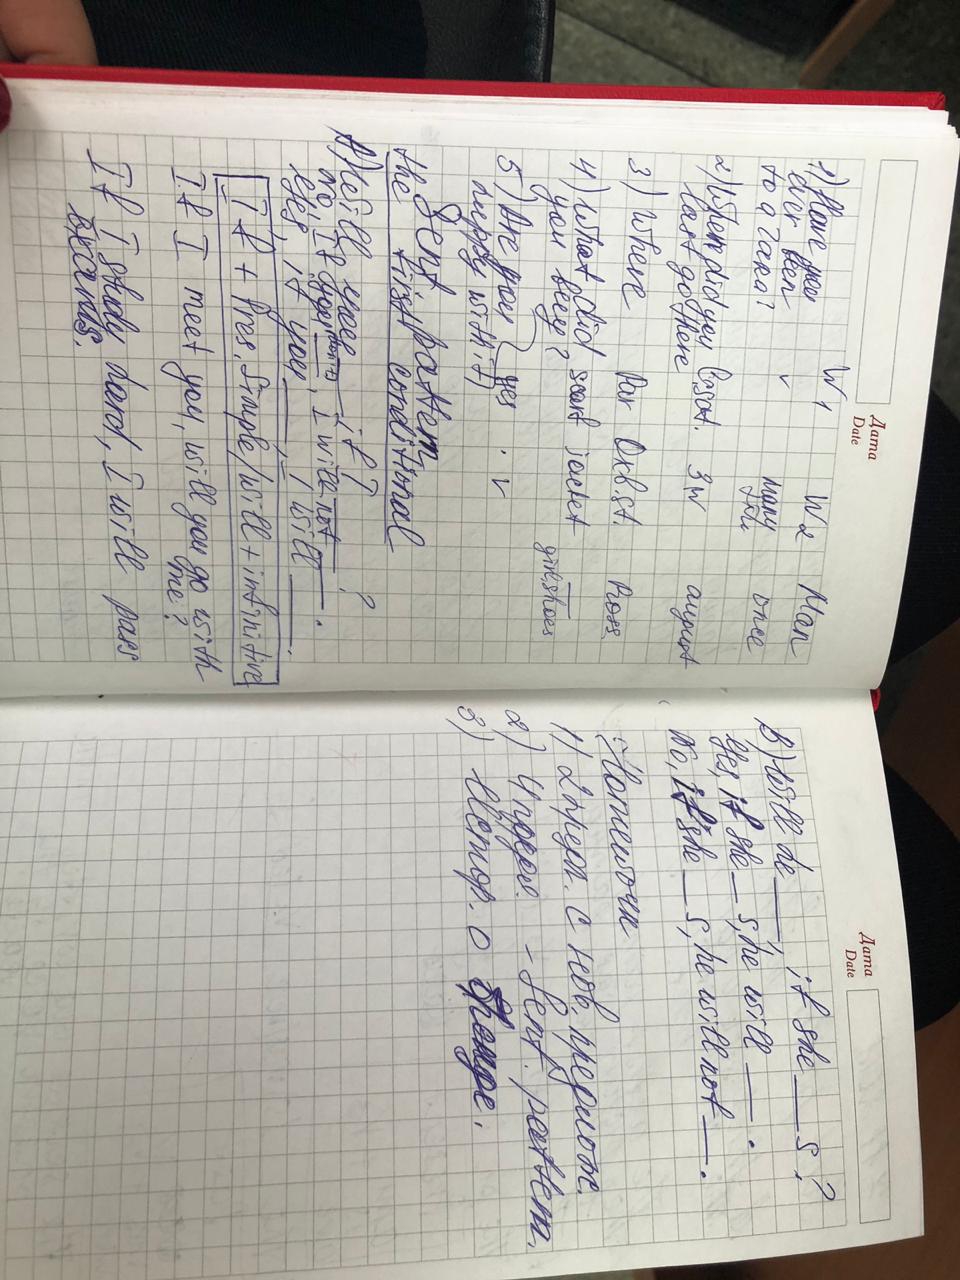 Дата
Date
W1 W2 Man
1) Have you
ever been
to a Zara? v many once
2) Where did you last sat. 3W august
last go there
3) Where Par Oxf.st. Ross.
4) What did scarf jacket —
you buy? girl,shoes
5) Are you yes . v
happy with it)
Sent. pattern
the first conditional
A) Will you ___ if I ___ ?
No, If you ___, I will not ___.
Yes, if you ___, I will ___.
If + Pres. Simple/will + infinitive
If I meet you, will you go with
me?
If I study hard, I will pass
exams.
Дата
Date
B) Will he ___, if she ___s?
Yes, if she __s, he will ___.
No, if she __s, he will not __.
Homework
1) 2 предл. с нов. предлож.
2) 4 предл. - Sent. pattern.
3) Истор. о бренде.